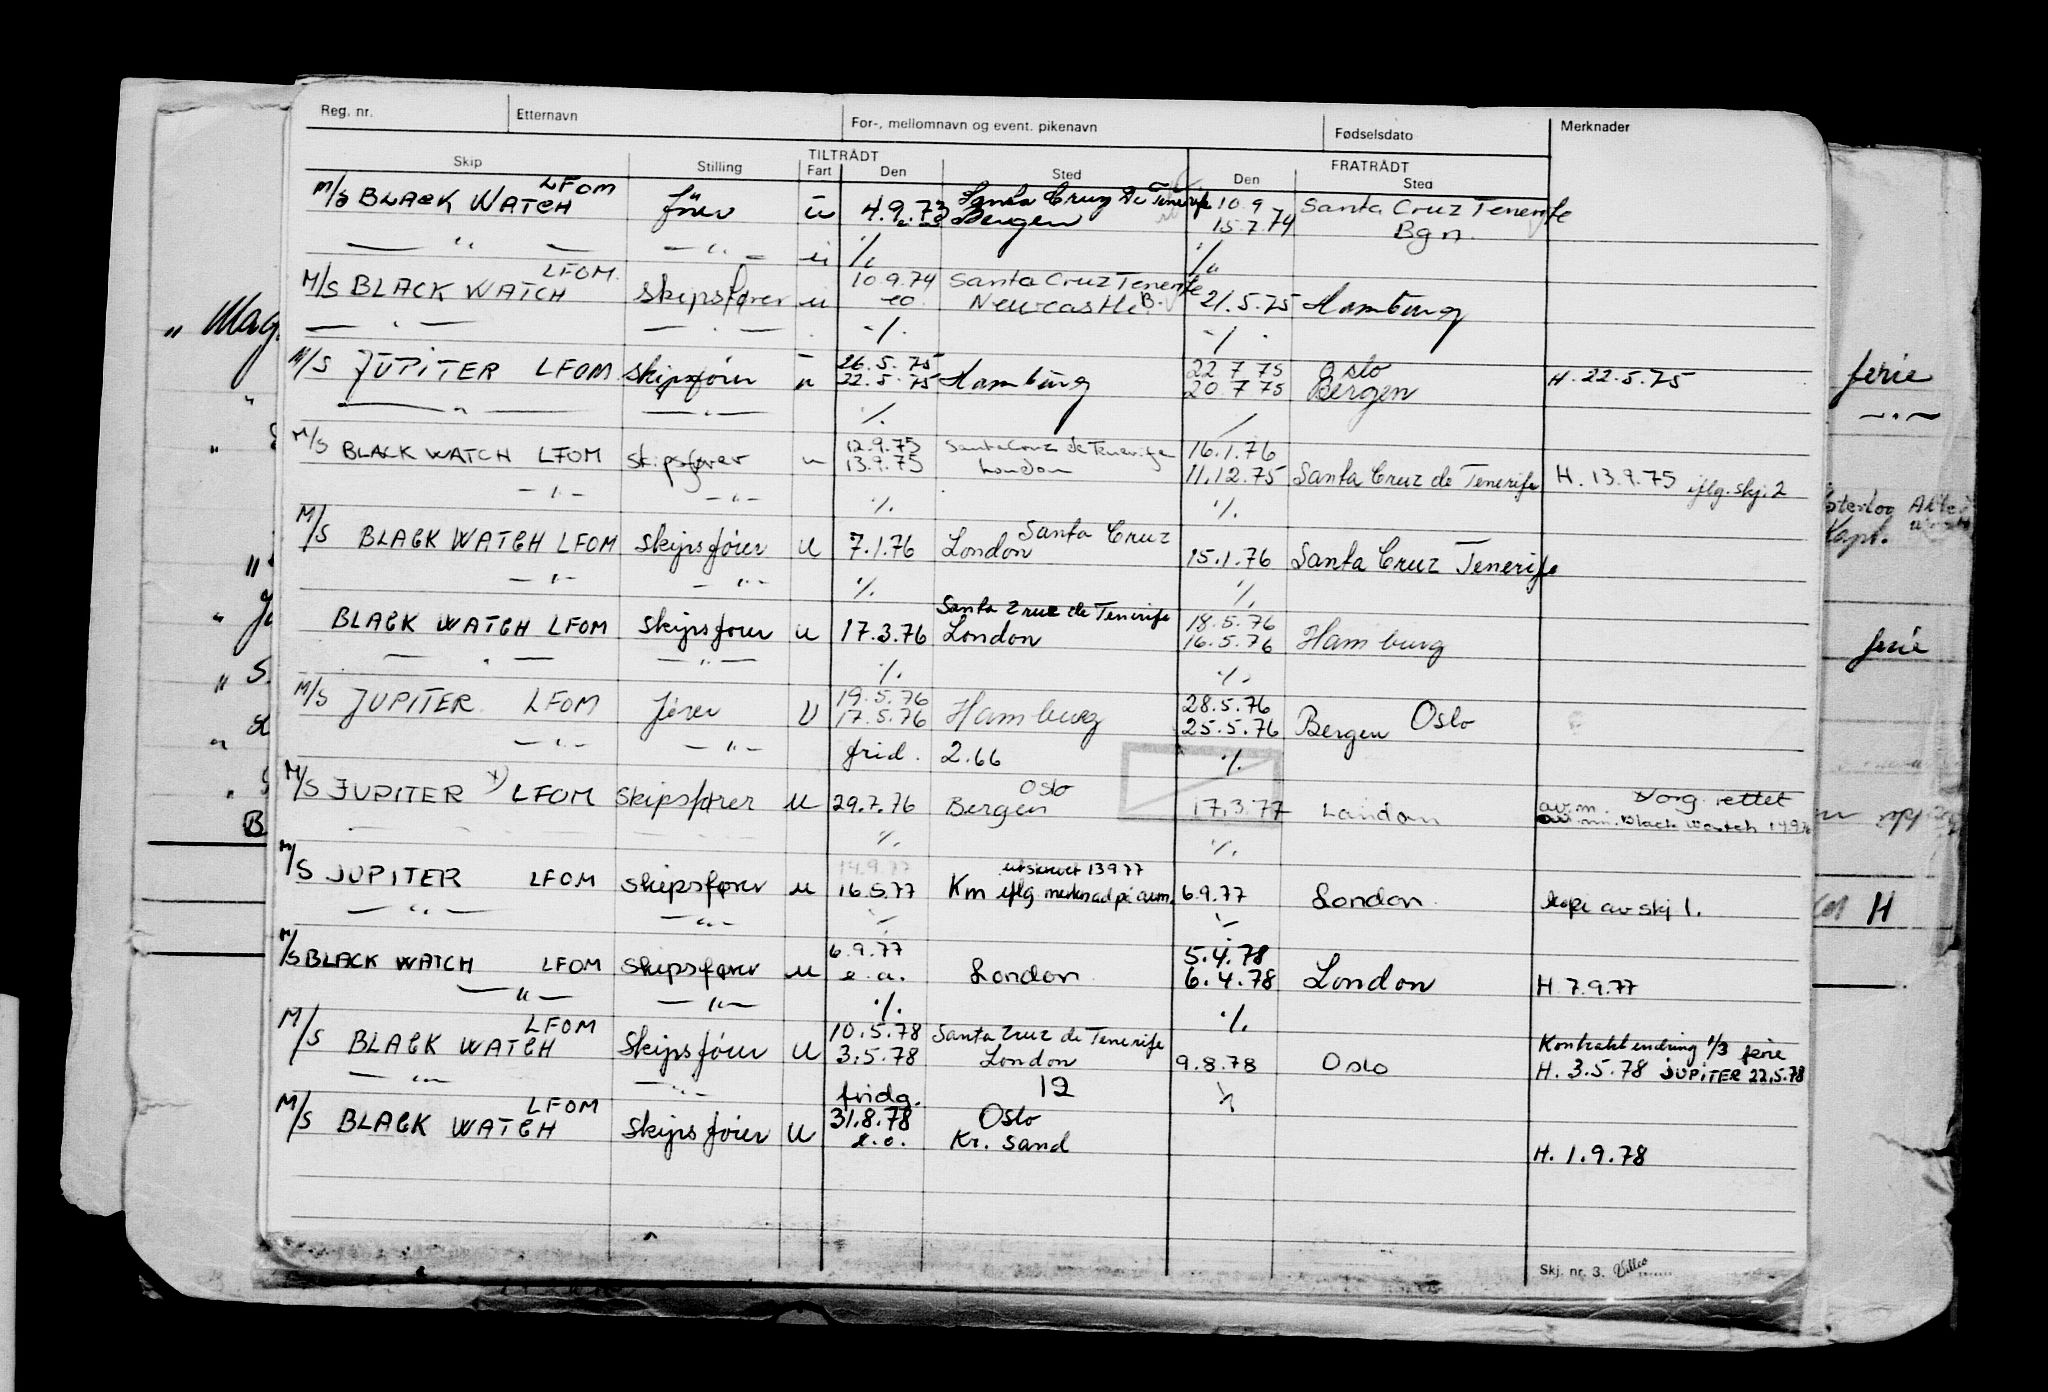 Reg. nr. Etternavn For-, mellomnavn og event. pikenavn Fødselsdato Merknader
TILTRÅDT FRATRÅDT
Skip Stilling Fart Den Sted Den Sted
LFOM Santa Cruz De Tenerife 10.9 Santa Cruz Tenerife
M/S BLACK WATCH fører u 4.9.73 Bergen 15.7.74 Bgn.
— " — — " — u % %
LFOM. 10.9.74 Santa Cruz Tenerife
M/S BLACK WATCH Skipsfører u eo. Newcastle B. 21.5.75 Hamburg
— " — — " — % %
26.5.75 22 7 75 Oslo
M/S JUPITER LFOM Skipsfører u 22.5.75 Hamburg 20 7 75 Bergen H. 22.5.75
— " — — " — % %
12.9.75 Santa Cruz de Tenerife 16.1.76
M/S BLACK WATCH LFOM Skipsfører u 13.9.75 London 11.12.75 Santa Cruz de Tenerife H. 13.9.75 iflg. skj. 2
— " — — " — % %
Santa Cruz
M/S BLACK WATCH LFOM Skipsfører u 7.1.76 London 15.1.76 Santa Cruz Tenerife
— " — — " — % %
Santa Cruz de Tenerife 18.5.76
BLACK WATCH LFOM Skipsfører u 17.3.76 London 16.5.76 Hamburg
— " — — " — % %
19.5.76 28.5.76
M/S JUPITER LFOM fører U 17.5.76 Hamburg 25.5.76 Bergen Oslo
— " — — " — frid. 2.66 %
Oslo Norg. rettet
M/S JUPITER x) LFOM Skipsfører u 29.7.76 Bergen 17.3.77 London av.m. Black Watch
% %
14.9.77 utskrevet 13 9 77
M/S JUPITER LFOM Skipsfører u 16.5.77 Km iflg merknad på avm. 6.9.77 London kopi av skj 1.
— " — — " — % %
6.9.77 5.4.78
M/S BLACK WATCH LFOM Skipsfører u e.a. London 6.4.78 London H. 7.9.77
— " — — " — % %
LFOM 10.5.78 Santa Cruz de Tenerife Kontraktendring 1/3 ferie
M/S BLACK WATCH Skipsfører U 3.5.78 London 9.8.78 Oslo H. 3.5.78 JUPITER 22.5.78
— " — — " — fridg. 12 %
LFOM 31.8.78 Oslo
M/S BLACK WATCH Skipsfører U e.o. Kr. sand H. 1.9.78
Skj. nr. 3.
" Mag.
ferie
— " —
Kapt.
ferie
H